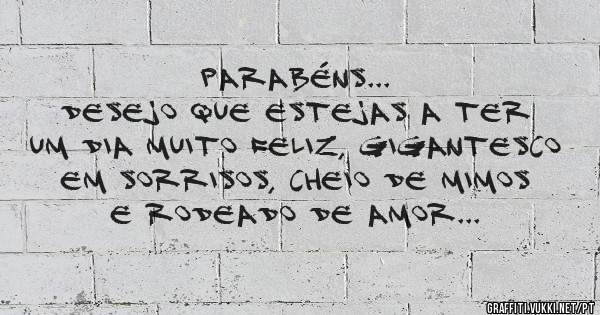 PARABÉNS...
DESEJO QUE ESTEJAS A TER
UM DIA MUITO FELIZ, GIGANTESCO
EM SORRISOS, CHEIO DE MIMOS
E RODEADO DE AMOR...
GRAFFITI.VUKKI.NET/PT